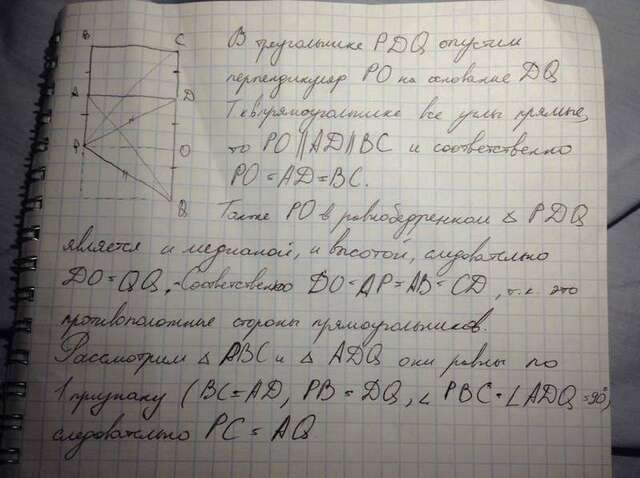 В С
A D
P O
Q
В треугольнике PDQ опустим
перпендикуляр PO на основание DQ
Т к в прямоугольнике все углы прямые,
то PO || AD || BC и соответственно
PO = AD = BC.
Также PO в равнобедренном △ PDQ
является и медианой, и высотой, следовательно
DO = OQ. Соответственно DO = AP = AB = CD, т.к. это
противоположные стороны прямоугольников.
Рассмотрим △ PBC и △ ADQ они равны по
1 признаку (BC = AD, PB = DQ, ∠ PBC = ∠ ADQ = 90°,
следовательно PC = AQ